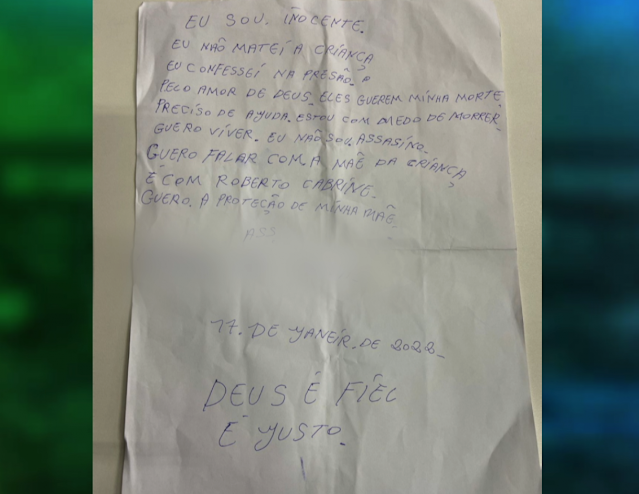 EU SOU. INOCENTE.
EU NÃO MATEI A CRIANÇA
EU CONFESSEI NA PRESÃO. A
PELO AMOR DE DEUS. ELES GUEREM MINHA MORTE.
PRECISO DE AYUDA. ESTOU COM MEDO DE MORRER.
GUERO VIVER. EU NÃO SOU ASSASINO.
GUERO FALAR COM. A MÃE DA CRIANÇA
É COM ROBERTO CABRINE.
GUERO. A PROTEÇÃO DE MINHA MÃE.
ASS
17. DE YANEIR. DE 2022_
DEUS É FIEL
E YUSTO.